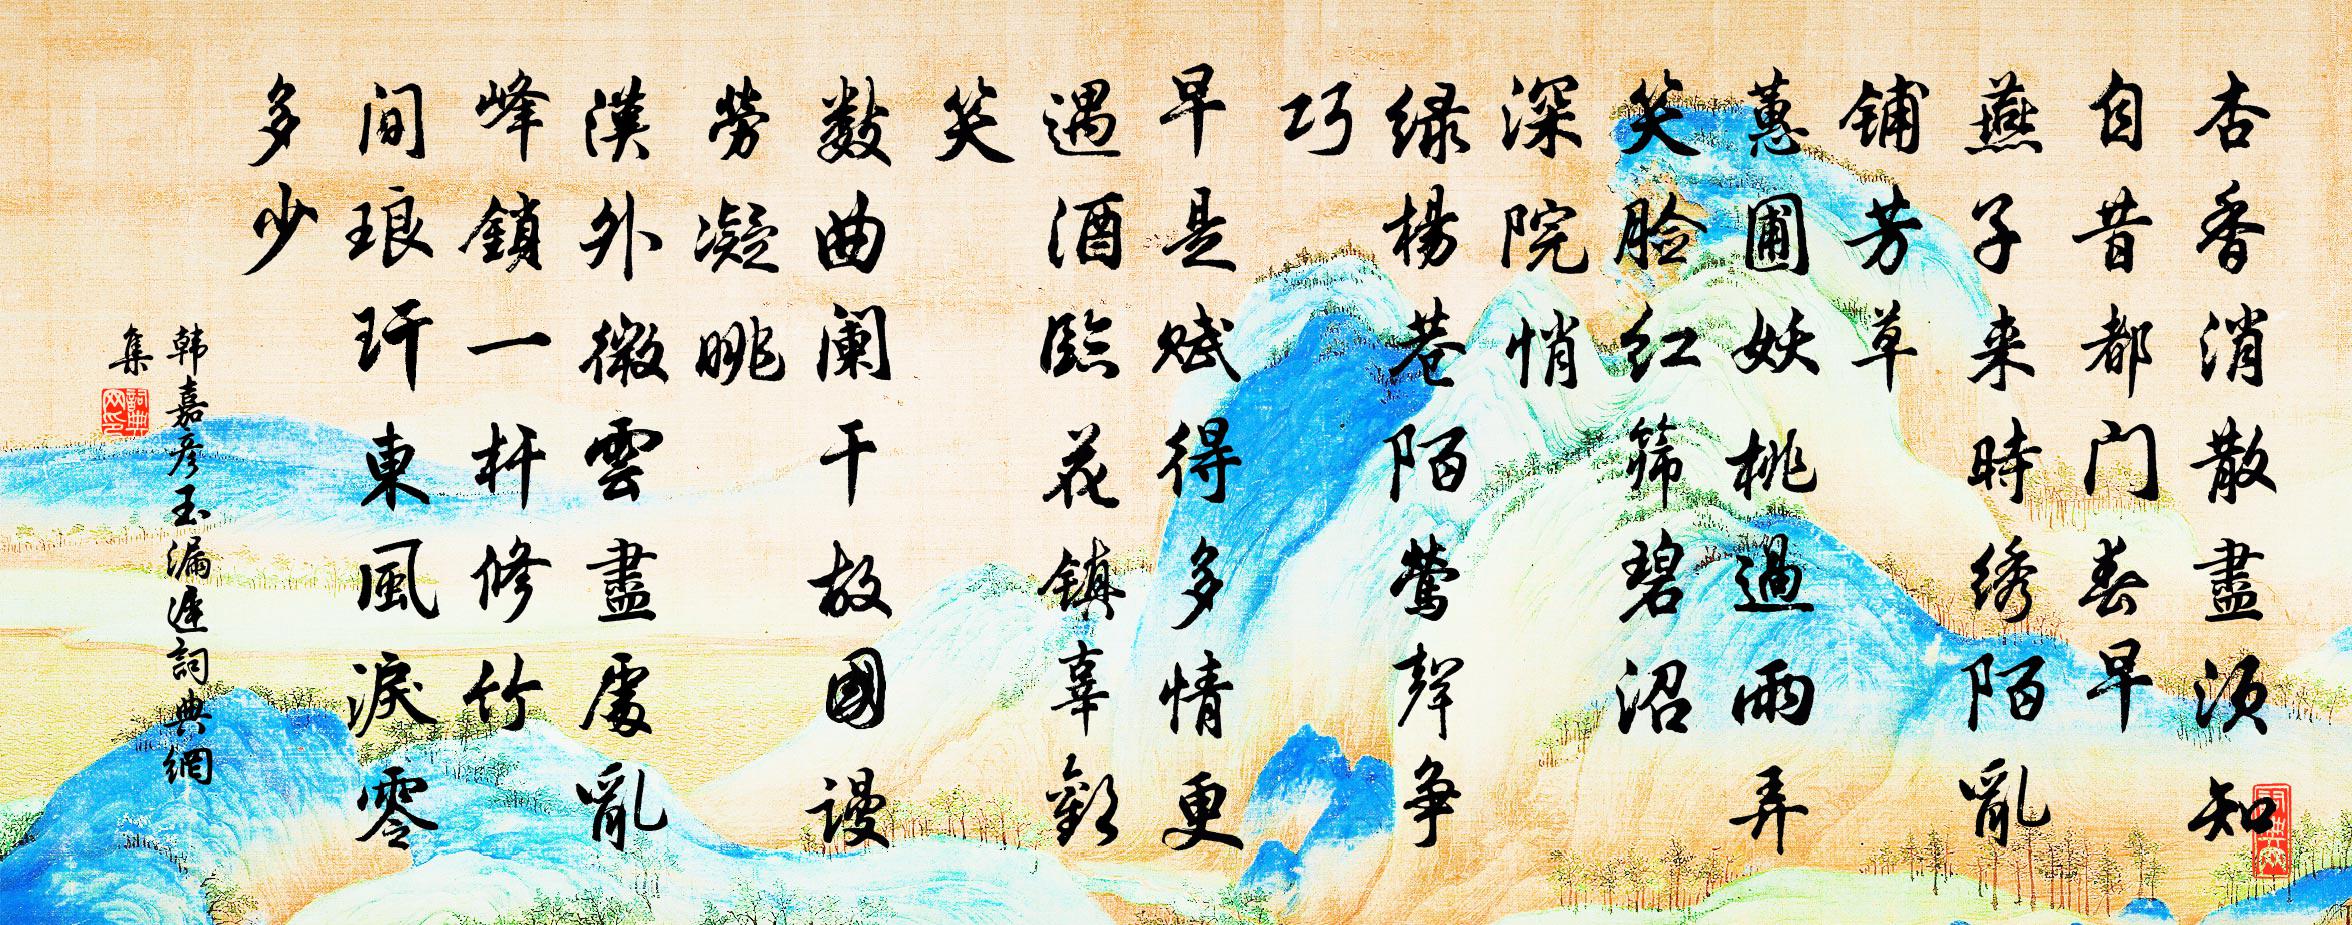 杏香消散盡须知
自昔都门春早
燕子来時绣陌亂
铺芳草
蕙圃妖桃過雨弄
笑脸红筛碧沼
深院悄
绿楊巷陌莺聲争
巧
早是赋得多情更
遇酒臨花镇辜歡
笑
数曲阑干故國谩
劳凝眺
漢外微雲盡處亂
峰鎖一杆修竹
间琅玕東風淚零
多少
韩嘉彦玉漏遲詞典網
集
詞典网印